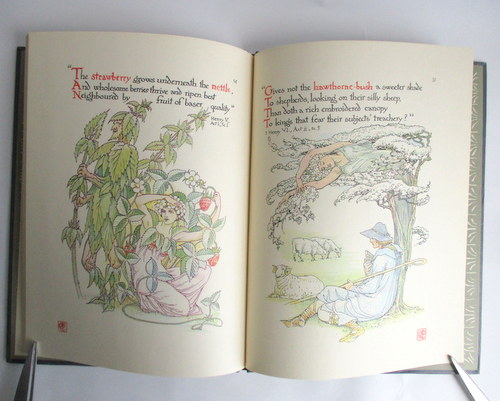 "The strawberry grows underneath the nettle,
And wholesome berries thrive and ripen best
Neighbour'd by fruit of baser quality."
Henry V.
Act I, Sc. 1
"Gives not the hawthorne-bush a sweeter shade
To shepherds, looking on their silly sheep,
Than doth a rich embroidered canopy
To kings that fear their subjects' treachery?"